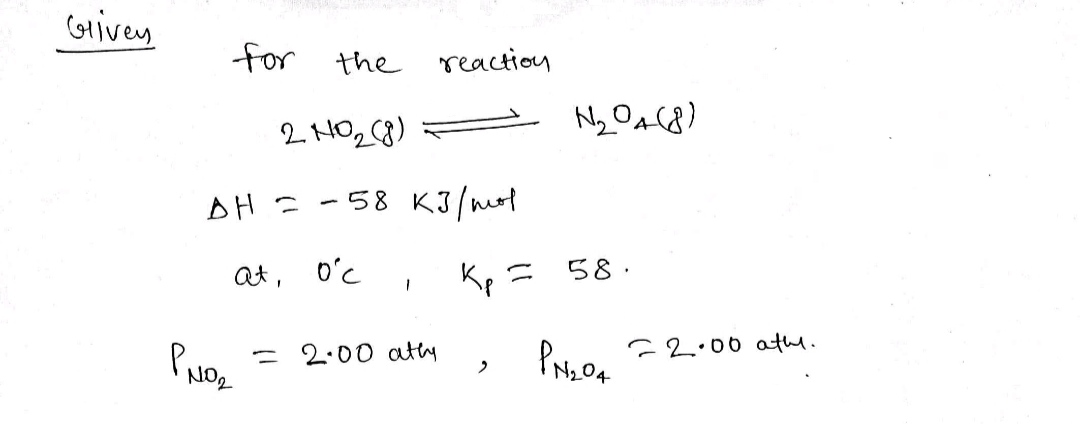 Given
for the reaction
2 NO₂(g) ⇌ N₂O₄(g)
ΔH = -58 KJ/mol
at, 0°C , Kp = 58.
P_NO₂ = 2.00 atm , P_N₂O₄ = 2.00 atm.